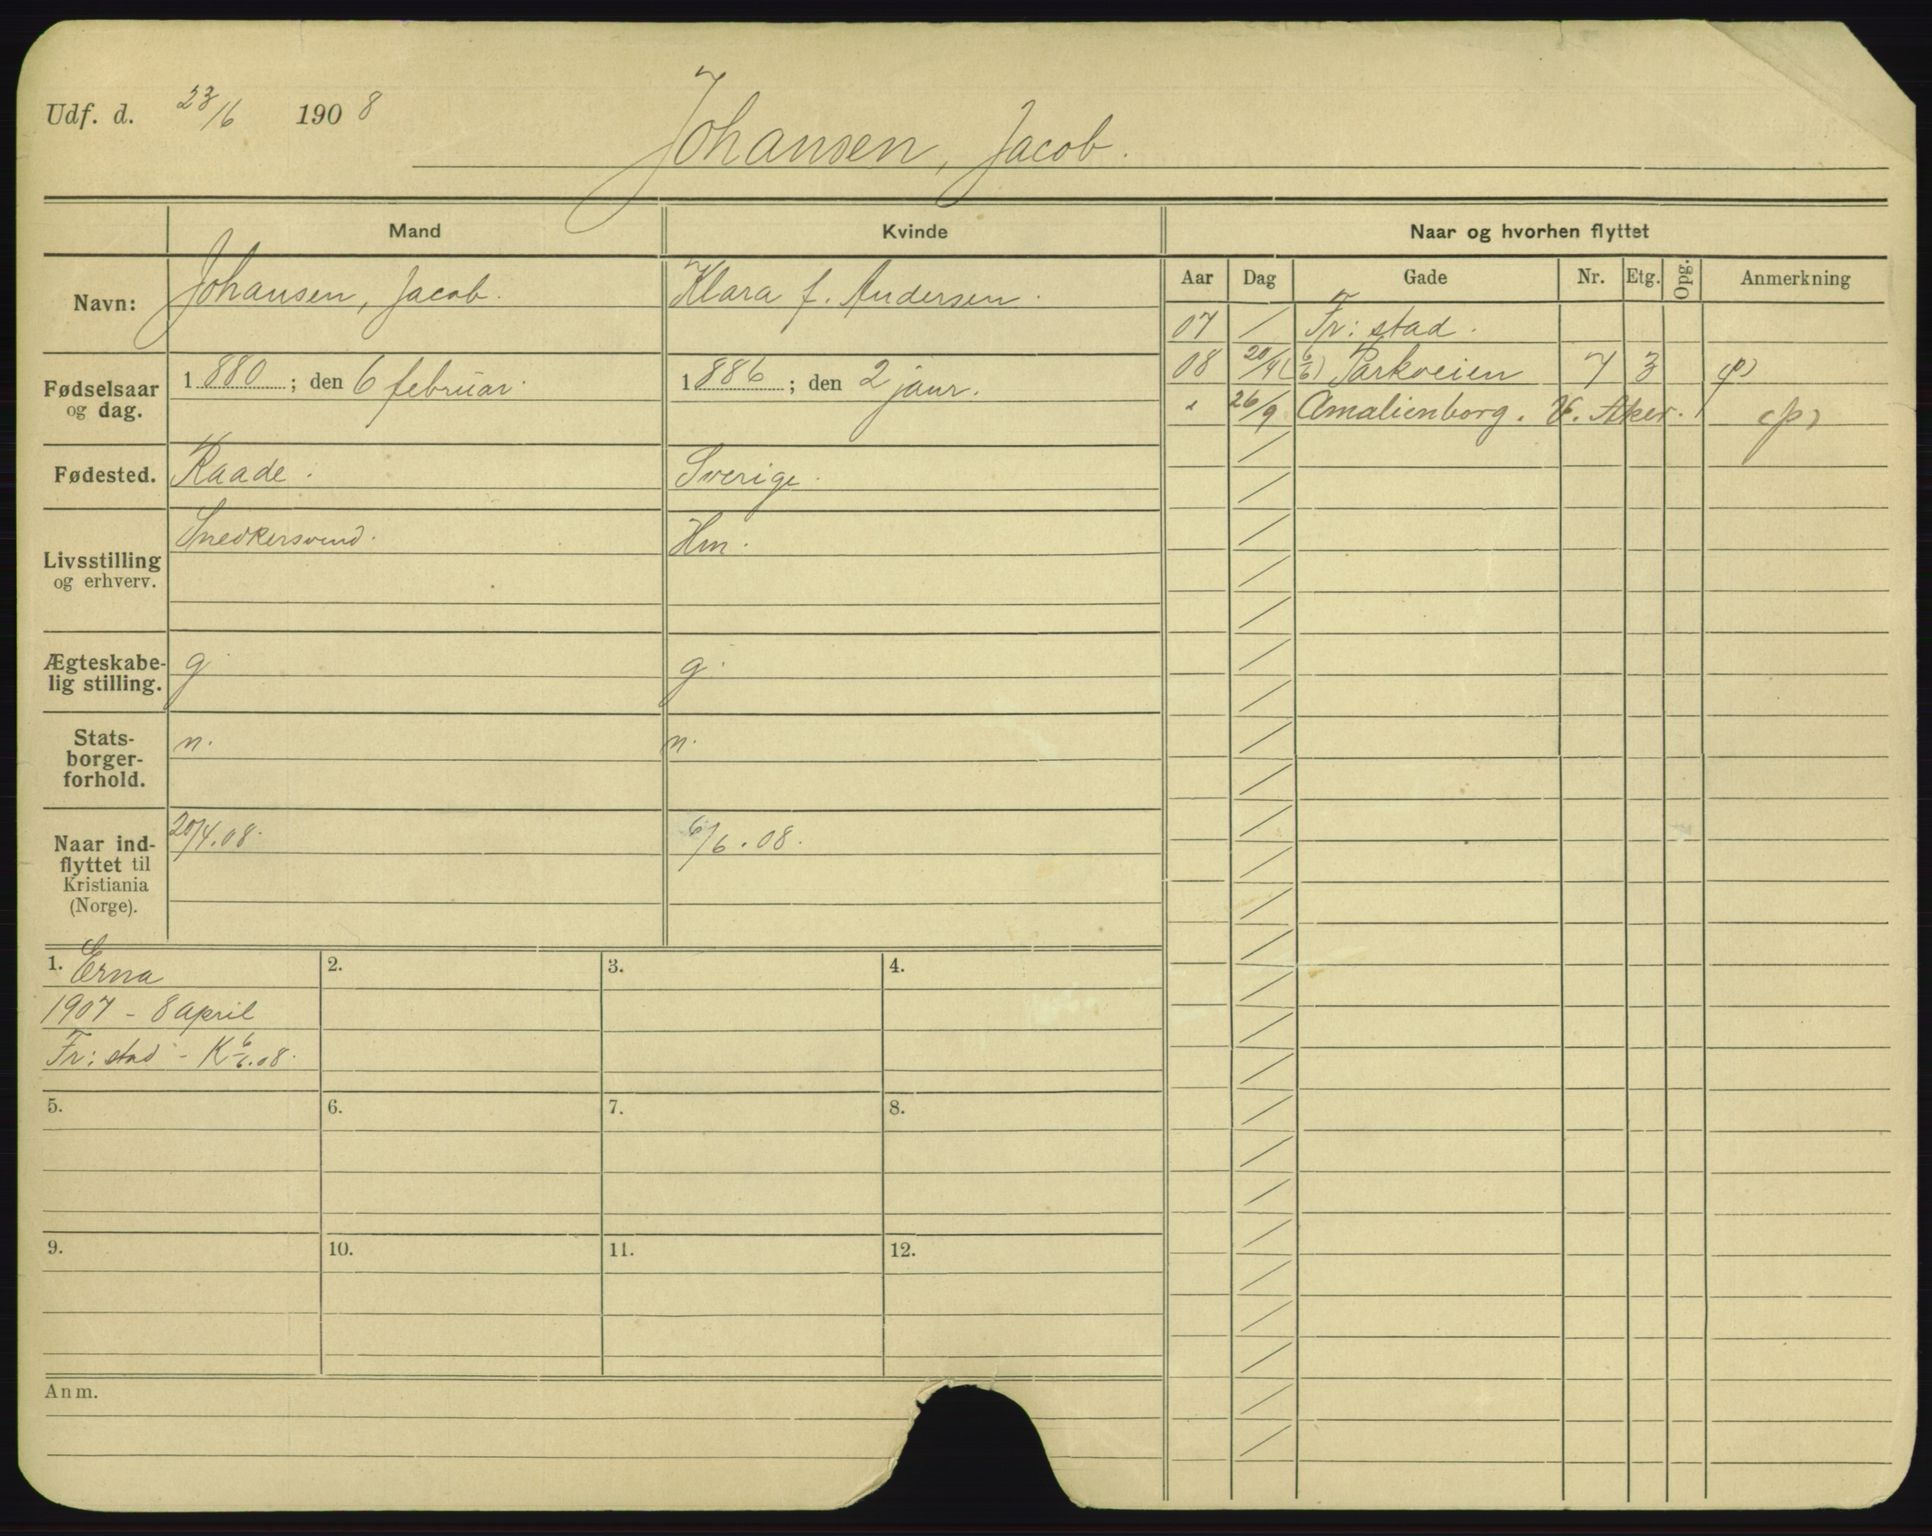 Udf. d. 23/6 1908
Johansen, Jacob.
Mand Kvinde Naar og hvorhen flyttet
Aar Dag Gade Nr. Etg. Opg. Anmerkning
Navn: Johansen, Jacob. Klara f. Andersen.
07 / Fr:stad.
08 20/4 (6/6) Parkveien 7 3 (p)
" 26/9 Amalienborg. V. Aker. (p)
Fødselsaar og dag. 1880; den 6 februar. 1886; den 2 janr.
Fødested. Raade. Sverige.
Livsstilling og erhverv. Snedkersvend. Hm.
Ægteskabe-
lig stilling. g. g.
Stats-
borger-
forhold. n. n.
Naar ind-
flyttet til
Kristiania
(Norge). 20/4.08. 6/6.08.
1. Erna
1907 - 8 april
Fr:stad - K 6/6.08.
2.
3.
4.
5.
6.
7.
8.
9.
10.
11.
12.
Anm.